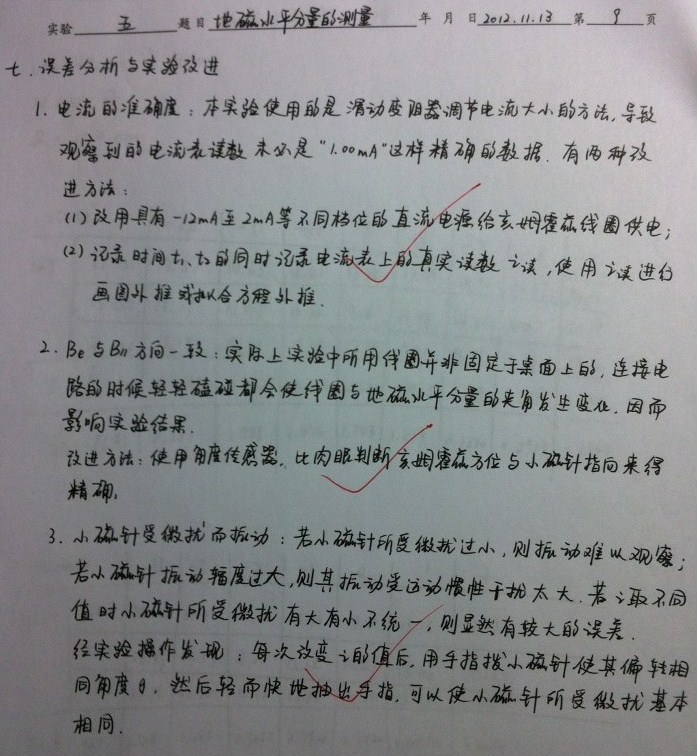 实验 五 题目 地磁水平分量的测量 年 月 日 2012.11.13 第 9 页
七. 误差分析与实验改进
1. 电流的准确度：本实验使用的是滑动变阻器调节电流大小的方法，导致
观察到的电流表读数未必是“1.00mA”这样精确的数据. 有两种改
进方法：
(1) 改用具有 -12mA至2mA等不同档位的直流电源给亥姆霍兹线圈供电；
(2) 记录时间 t₁、t₂ 的同时记录电流表上的真实读数 i读，使用 i读进行
画图外推或拟合方程外推.
2. Be与B∥方向一致：实际上实验中所用线圈并非固定于桌面上的，连接电
路的时候轻轻磕碰都会使线圈与地磁水平分量的夹角发生变化. 因而
影响实验结果.
改进方法：使用角度传感器，比肉眼判断亥姆霍兹方位与小磁针指向来得
精确.
3. 小磁针受微扰而振动：若小磁针所受微扰过小，则振动难以观察；
若小磁针振动幅度过大，则其振动受运动惯性干扰太大. 若 i取不同
值时小磁针所受微扰有大有小不统一，则显然有较大的误差.
经实验操作发现：每次改变i的值后，用手指拨小磁针使其偏转相
同角度θ，然后轻而快地抽出手指，可以使小磁针所受微扰基本
相同.